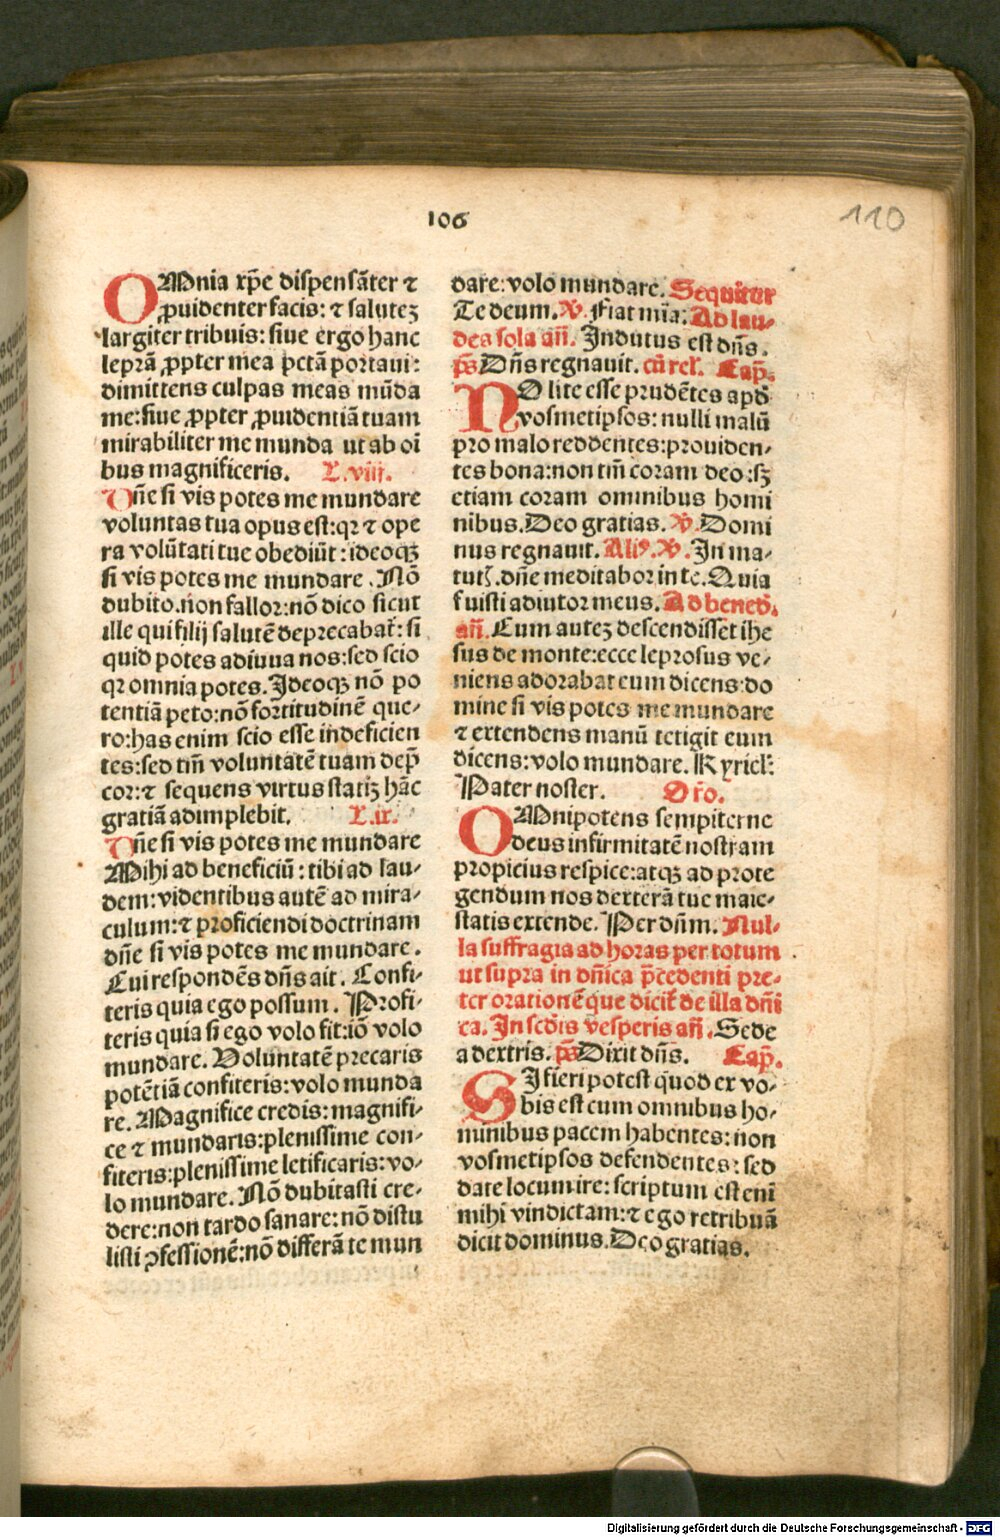 106
110
OMnia xp̄e dispensāter ⁊
ꝓuidenter facis: ⁊ saluteȝ
largiter tribuis: siue ergo hanc
leprā ꝓpter mea pctā portaui:
dimittens culpas meas mūda
me: siue ꝓpter ꝓuidentiā tuam
mirabiliter me munda ut ab oī
bus magnificeris. L.viij.
Dn̄e si vis potes me mundare
voluntas tua opus est: qꝛ ⁊ ope
ra volūtati tue obediūt: ideoqꝫ
si vis potes me mundare. Nō
dubito. non fallor: nō dico sicut
ille qui filij salutē deprecabat̄: si
quid potes adiuua nos: sed scio
qꝛ omnia potes. Ideoqꝫ nō po
tentiā peto: nō fortitudinē que-
ro: has enim scio esse indeficien
tes: sed tm̄ voluntatē tuam dep̄
cor: ⁊ sequens virtus statiȝ hāc
gratiā adimplebit. L.ix.
Dn̄e si vis potes me mundare
Mihi ad beneficiū: tibi ad lau-
dem: videntibus autē ad mira-
culum: ⁊ proficiendi doctrinam
dn̄e si vis potes me mundare.
Cui respondēs dn̄s ait. Confi-
teris quia ego possum. Profi-
teris quia si ego volo fit: iō volo
mundare. Voluntatē precaris
potētiā confiteris: volo munda
re. Magnifice credis: magnifi-
ce ⁊ mundaris: plenissime con-
fiteris: plenissime letificaris: vo-
lo mundare. Nō dubitasti cre-
dere: non tardo sanare: nō distu
listi ꝓfessionē: nō differā te mun
dare: volo mundare. Sequitur
Te deum. ℣. Fiat mīa. Ad lau-
des sola añ. Indutus est dn̄s.
p̄s Dn̄s regnauit. cū rel'. Cap̄.
NOlite esse prudētes apd'
vosmetipsos: nulli malū
pro malo reddentes: prouiden-
tes bona: non tm̄ coram deo: sȝ
etiam coram omnibus homi
nibus. Deo gratias. ℣. Domi
nus regnauit. Aliꝰ. ℣. In ma-
tuť. dn̄e meditabor in te. Quia
fuisti adiutor meus. Ad bened'.
añ. Cum auteȝ descendisset ihe
sus de monte: ecce leprosus ve-
niens adorabat eum dicens: do
mine si vis potes me mundare
⁊ extendens manū tetigit eum
dicens: volo mundare. Kyriel'.
Pater noster. Or̄o.
OMnipotens sempiterne
deus infirmitatē nostram
propicius respice: atqꝫ ad prote
gendum nos dexterā tue maie-
statis extende. Per dn̄m. Nul-
la suffragia ad horas per totum
ut supra in dn̄ica p̄cedenti pre-
ter orationē que dicit̄ de illa dn̄i
ca. In scd'is vesperis añ. Sede
a dextris. p̄s Dixit dn̄s. Cap̄.
SI fieri potest quod ex vo-
bis est cum omnibus ho-
minibus pacem habentes: non
vosmetipsos defendentes: sed
date locum ire: scriptum est enī
mihi vindictam: ⁊ ego retribuā
dicit dominus. Deo gratias.
Digitalisierung gefördert durch die Deutsche Forschungsgemeinschaft - DFG